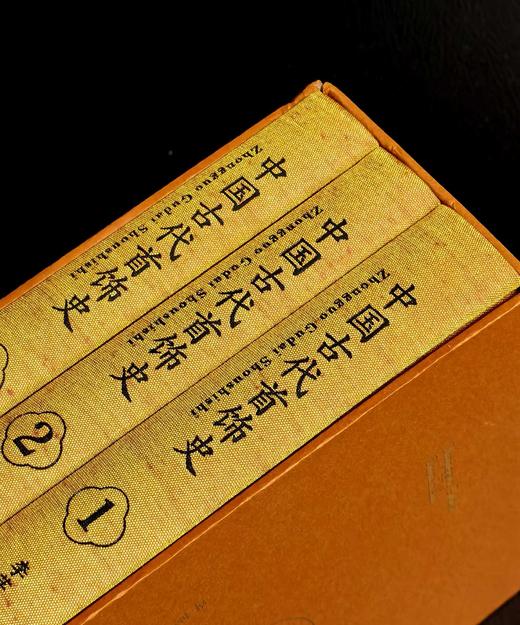 中国古代首饰史
Zhongguo Gudai Shoushishi
中国古代首饰史
Zhongguo Gudai Shoushishi
2
中国古代首饰史
Zhongguo Gudai Shoushishi
1
李芽